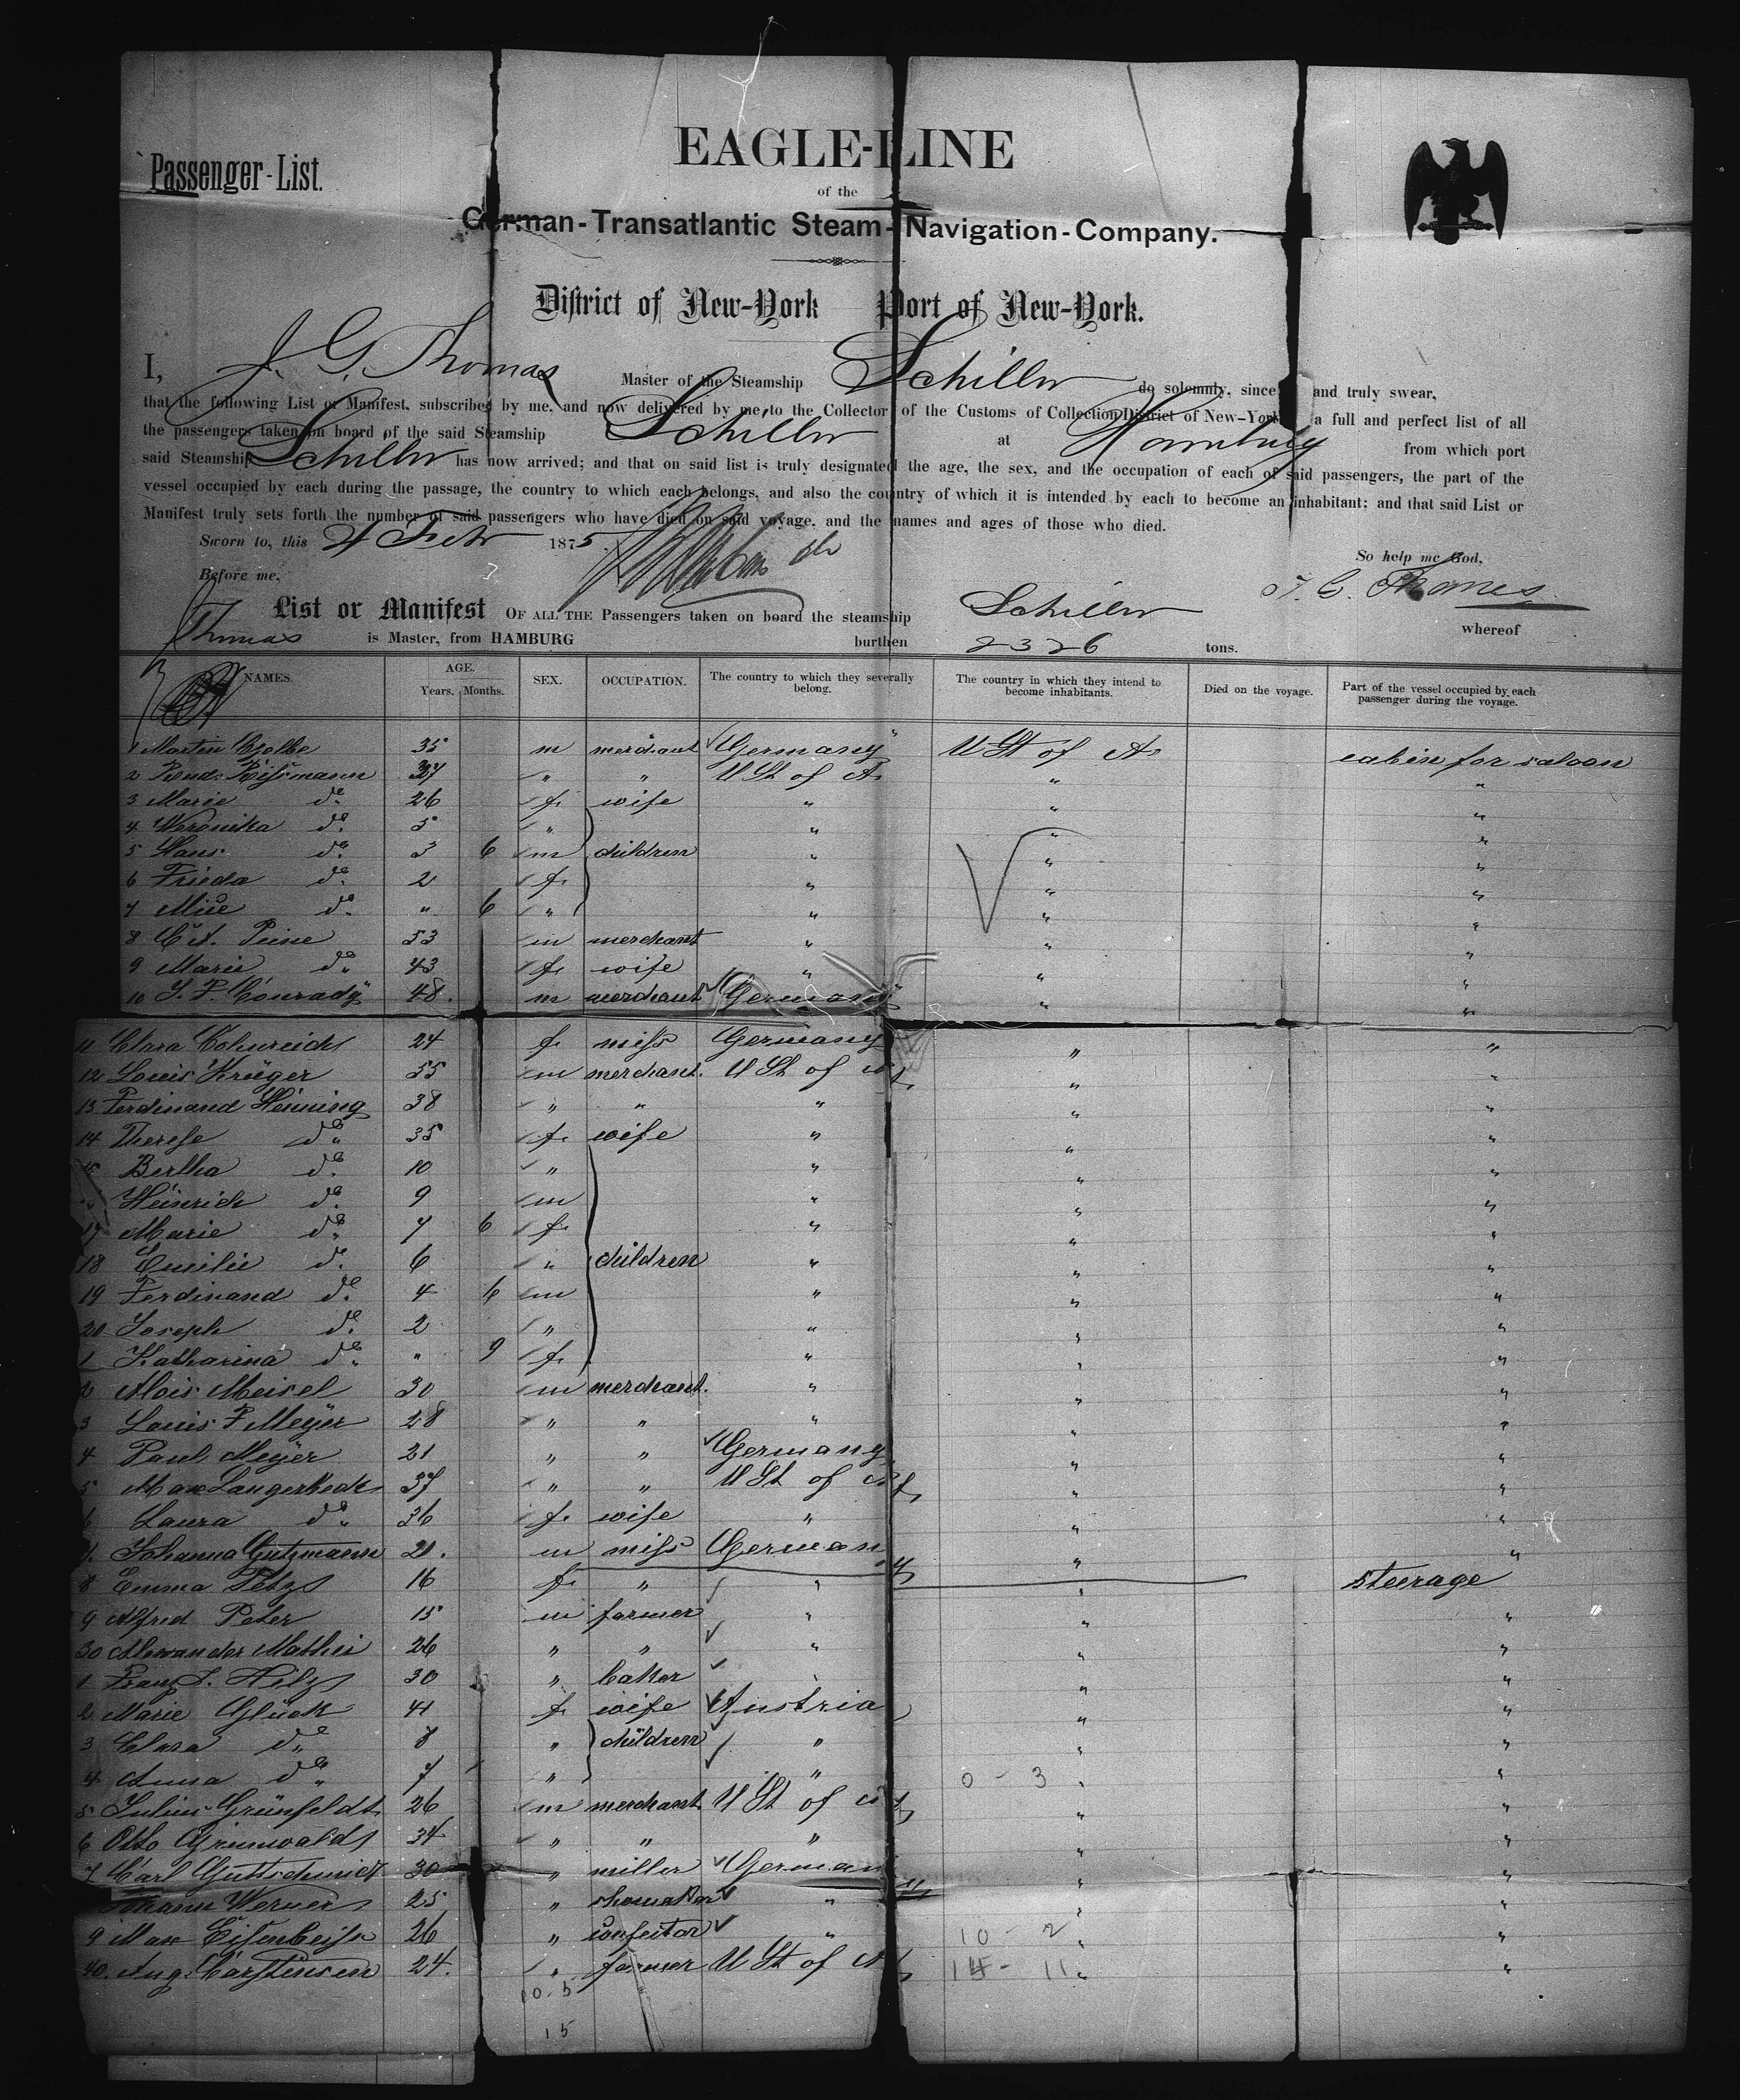 Passenger-List.
EAGLE-LINE
of the
German-Transatlantic Steam-Navigation-Company.
District of New-York Port of New-York.
I, J. G. Thomas Master of the Steamship Schiller do solemnly, since and truly swear,
that the following List or Manifest, subscribed by me, and now delivered by me to the Collector of the Customs of Collection District of New-York a full and perfect list of all
the passengers taken on board of the said Steamship Schiller at Hamburg from which port
said Steamship Schiller has now arrived; and that on said list is truly designated the age, the sex, and the occupation of each of said passengers, the part of the
vessel occupied by each during the passage, the country to which each belongs, and also the country of which it is intended by each to become an inhabitant; and that said List or
Manifest truly sets forth the number of said passengers who have died on said voyage, and the names and ages of those who died.
Sworn to, this 4 Febr 1875.
So help me God,
Before me.
J. G. Thomas
List or Manifest OF ALL THE Passengers taken on board the steamship Schiller whereof
Thomas is Master, from HAMBURG burthen 2326 tons.
NAMES. AGE. Years. Months. SEX. OCCUPATION. The country to which they severally belong. The country in which they intend to become inhabitants. Died on the voyage. Part of the vessel occupied by each passenger during the voyage.
1 Martin Czolbe 35 m merchant Germany U St of A. cabin for saloon
2 Rissmann " " U St of A. " "
3 Marie do. 26 f. wife " " "
4 Weronika do. 5 " " " "
5 Hans do. 3 6 m children " " "
6 Frieda do. 2 f. " " "
7 do. " 6 " " " "
8 C. A. Peine 53 m merchant " " "
9 Marie do. 43 f. wife " " "
10 J. P. Conrady 48. m merchant Germany " "
11 Clara 24 f. miss Germany " "
12 Louis Krüger 55 m merchant. U St of A. " "
13 Ferdinand Henning 38 " " " " "
14 Therese do. 35 f. wife " " "
15 Bertha do. 10 " " " "
Heinrich do. 9 m " " "
17 Marie do. 7 6 f. " " "
18 Emilie do. 6 " children " " "
19 Ferdinand do. 4 6 m " " "
20 Joseph do. 2 " " " "
1 Katharina do. " 9 f. " " "
2 Alois Meisel 30 m merchant. " " "
3 Louis F Meyer 28 " " " " "
4 Paul Meyer 21 " " Germany " "
5 Max Langerheck 37 " " U St of A. " "
6 Laura do. 36 f. wife " " "
7. Johanna Gutzmann 21. m miss Germany " "
8 Emma Petz 16 f. " " " steerage
9 Alfred Peter 15 m farmer " " "
30 Alexander Mathei 26 " " " " "
1 Franz J. Hilz 30 " baker " " "
2 Marie Glück 41 f. wife Austria " "
3 Clara do. 8 " children " " "
4 Anna do. 7 " " 0 - 3 " "
5 Julius Grünfeldt 26 m merchant U St of A. " "
6 Otto Grunwald 34 " " " " "
7 Carl Guttschmidt 30 " miller Germany " "
Johann Werner 25 " shomaker " " "
9 Max Eisenbeiss 26 " confector " 10 - 2 " "
40. Aug. Carstensen 24. " farmer U St of A. 14 - 11 " "
10. 5
15